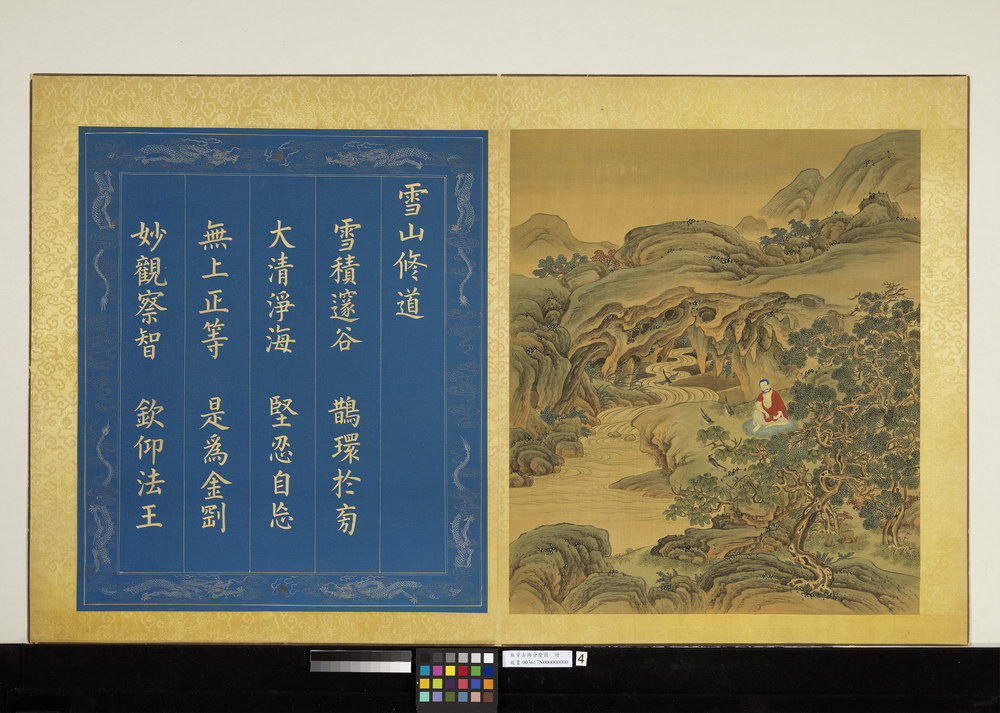 雪山修道
雪積邃谷 鵲環於旁
大清淨海 堅忍自忘
無上正等 是爲金剛
妙觀察智 欽仰法王
4